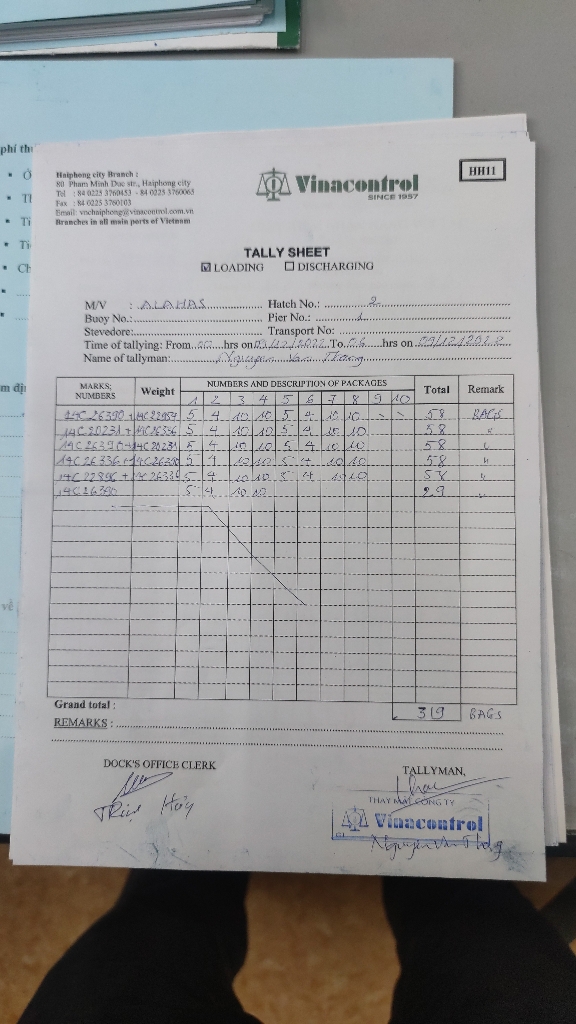 phí th
Haiphong city Branch :
80 Pham Minh Duc str., Haiphong city
Tel : 84 0225 3760453 - 84 0225 3760063
Fax : 84 0225 3760103
Email: vnchaiphong@vinacontrol.com.vn
Branches in all main ports of Vietnam
Vinacontrol
SINCE 1957
HH11
TALLY SHEET
LOADING DISCHARGING
M/V : ALAHAS Hatch No.: 2
Buoy No.: Pier No.: 1
Stevedore: Transport No:
Time of tallying: From 00 hrs on 09/12/2022 To 06 hrs on 09/12/2022
Name of tallyman: Nguyen Van Thang
MARKS; NUMBERS Weight NUMBERS AND DESCRIPTION OF PACKAGES Total Remark
1 2 3 4 5 6 7 8 9 10
14C26390 + 14C22957 5 4 10 10 5 4 10 10 58 BAGS
14C20231 + 14C26336 5 4 10 10 5 4 10 10 58 "
14C26390 + 14C20231 5 4 10 10 5 4 10 10 58 "
14C26336 + 14C26390 5 4 10 10 5 4 10 10 58 "
14C22896 + 14C26336 5 4 10 10 5 4 10 10 58 "
14C26390 5 4 10 10 29 "
Grand total : 319 BAGS
REMARKS :
DOCK'S OFFICE CLERK TALLYMAN,
THAY MẶT CÔNG TY
Vinacontrol
Nguyen Van Thang